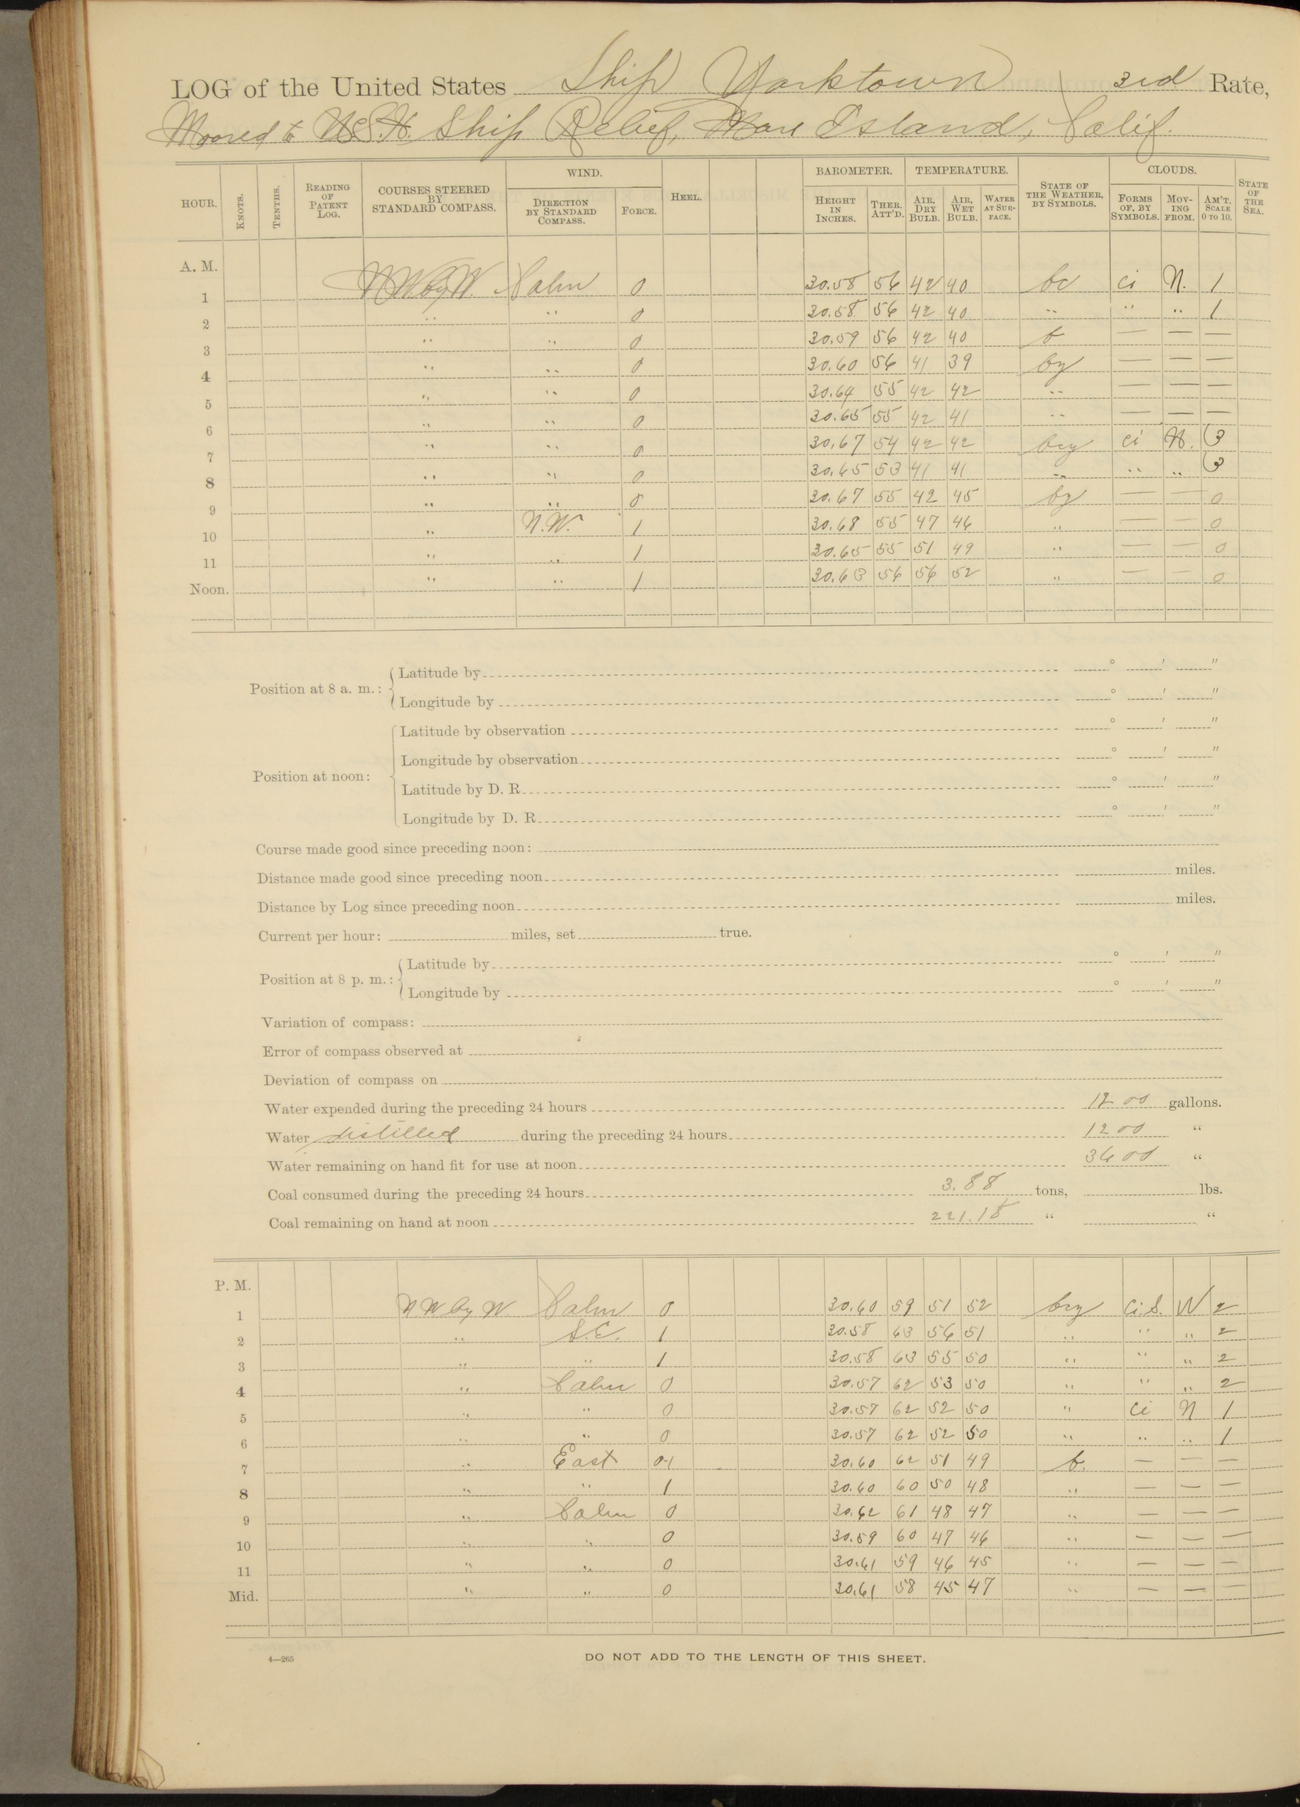 LOG of the United States Ship Yorktown 3rd Rate,
Moored to U.S.H. Ship Relief, Mare Island, Calif.
HOUR. KNOTS. TENTHS. READING OF PATENT LOG. COURSES STEERED BY STANDARD COMPASS. WIND. DIRECTION BY STANDARD COMPASS. FORCE. HEEL. BAROMETER. HEIGHT IN INCHES. THER. ATT'D. TEMPERATURE. AIR, DRY BULB. AIR, WET BULB. WATER AT SURFACE. STATE OF THE WEATHER, BY SYMBOLS. CLOUDS. FORMS OF, BY SYMBOLS. MOVING FROM. AM'T, SCALE 0 TO 10. STATE OF THE SEA.
A. M.
1 NW by W. Calm 0 30.58 56 42 40 bc ci N. 1
2 " " 0 30.58 56 42 40 " " " 1
3 " " 0 30.59 56 42 40 b — — —
4 " " 0 30.60 56 41 39 by — — —
5 " " 0 30.64 55 42 42 " — — —
6 " " 0 30.65 55 42 41 " — — —
7 " " 0 30.67 54 42 42 bcy ci N. 3
8 " " 0 30.65 53 41 41 " " " 3
9 " " 0 30.67 55 42 45 by — — 0
10 " N.W. 1 30.68 55 47 46 " — — 0
11 " " 1 30.65 55 51 49 " — — 0
Noon. " " 1 30.63 56 56 52 " — — 0
Position at 8 a. m.: Latitude by ° ' "
Longitude by ° ' "
Latitude by observation ° ' "
Longitude by observation ° ' "
Position at noon:
Latitude by D. R. ° ' "
Longitude by D. R. ° ' "
Course made good since preceding noon:
Distance made good since preceding noon miles.
Distance by Log since preceding noon miles.
Current per hour: miles, set true.
Position at 8 p. m.: Latitude by ° ' "
Longitude by ° ' "
Variation of compass:
Error of compass observed at
Deviation of compass on
Water expended during the preceding 24 hours 1200 gallons.
Water distilled during the preceding 24 hours 1200 "
Water remaining on hand fit for use at noon 3600 "
Coal consumed during the preceding 24 hours 3.88 tons, lbs.
Coal remaining on hand at noon 221.18 " "
P. M.
1 NW by W Calm 0 30.60 59 51 52 bcy Ci S. W 2
2 " S.E. 1 30.58 63 56 51 " " " 2
3 " " 1 30.58 63 55 50 " " " 2
4 " Calm 0 30.57 62 53 50 " " " 2
5 " " 0 30.57 62 52 50 " Ci N 1
6 " " 0 30.57 62 52 50 " " " 1
7 " East 0-1 30.60 62 51 49 b. — — —
8 " " 1 30.60 60 50 48 " — — —
9 " Calm 0 30.62 61 48 47 " — — —
10 " " 0 30.59 60 47 46 " — — —
11 " " 0 30.61 59 46 45 " — — —
Mid. " " 0 30.61 58 45 47 " — — —
4—265 DO NOT ADD TO THE LENGTH OF THIS SHEET.